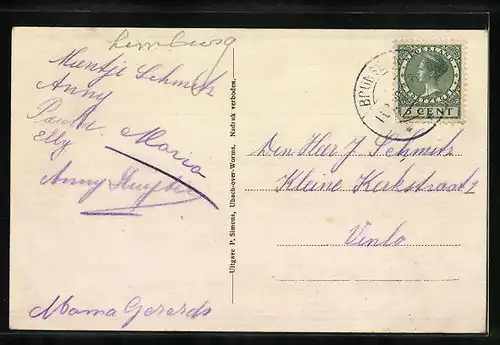 Limburg
Mientje Schmitz
Anny
Elly
Maria
Anny
Mama Gerards
Uitgave P. Simons, Ubach-over-Worms. Nadruk verboden.
NEDERLAND
5 CENT
BRUNS
Den Heer J Schmitz
Kleine Kerkstraat 2
Venlo